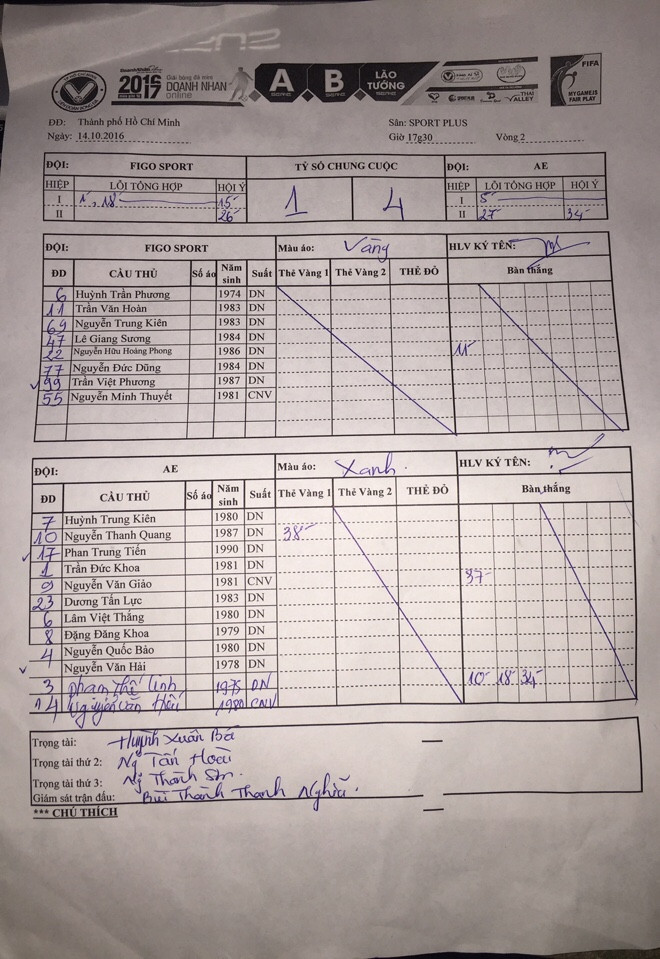 2016 2017 Giải bóng đá mini DOANH NHÂN online A B LÃO TƯỚNG THAI VALLEY FIFA MYGAMEIS FAIR PLAY
ĐĐ: Thành phố Hồ Chí Minh Sân: SPORT PLUS
Ngày: 14.10.2016 Giờ 17g30 Vòng 2
ĐỘI: FIGO SPORT TỶ SỐ CHUNG CUỘC ĐỘI: AE
HIỆP LỖI TỔNG HỢP HỘI Ý 1 4 HIỆP LỖI TỔNG HỢP HỘI Ý
I 1, 18 15 I 5
II 26 II 27 34
ĐỘI: FIGO SPORT Màu áo: Vàng HLV KÝ TÊN:
ĐD CẦU THỦ Số áo Năm sinh Suất Thẻ Vàng 1 Thẻ Vàng 2 THẺ ĐỎ Bàn thắng
6 Huỳnh Trần Phương 1974 DN
11 Trần Văn Hoàn 1983 DN
69 Nguyễn Trung Kiên 1983 DN
47 Lê Giang Sương 1984 DN
22 Nguyễn Hữu Hoàng Phong 1986 DN 11
77 Nguyễn Đức Dũng 1984 DN
99 Trần Việt Phương 1987 DN
55 Nguyễn Minh Thuyết 1981 CNV
ĐỘI: AE Màu áo: Xanh. HLV KÝ TÊN:
ĐD CẦU THỦ Số áo Năm sinh Suất Thẻ Vàng 1 Thẻ Vàng 2 THẺ ĐỎ Bàn thắng
7 Huỳnh Trung Kiên 1980 DN
10 Nguyễn Thanh Quang 1987 DN 38
17 Phan Trung Tiến 1990 DN
1 Trần Đức Khoa 1981 DN
9 Nguyễn Văn Giáo 1981 CNV 37
23 Dương Tấn Lực 1983 DN
6 Lâm Việt Thắng 1980 DN
8 Đặng Đăng Khoa 1979 DN
4 Nguyễn Quốc Bảo 1980 DN
Nguyễn Văn Hải 1978 DN
3 Phạm Thế Linh 1975 DN 10 18 34
14 Nguyễn Văn Hậu 1980 CNV
Trọng tài: Huỳnh Xuân Bá
Trọng tài thứ 2: Ng Tấn Hoài
Trọng tài thứ 3: Ng Thành Sơn.
Giám sát trận đấu: Bùi Thành Thanh Nghĩa.
*** CHÚ THÍCH